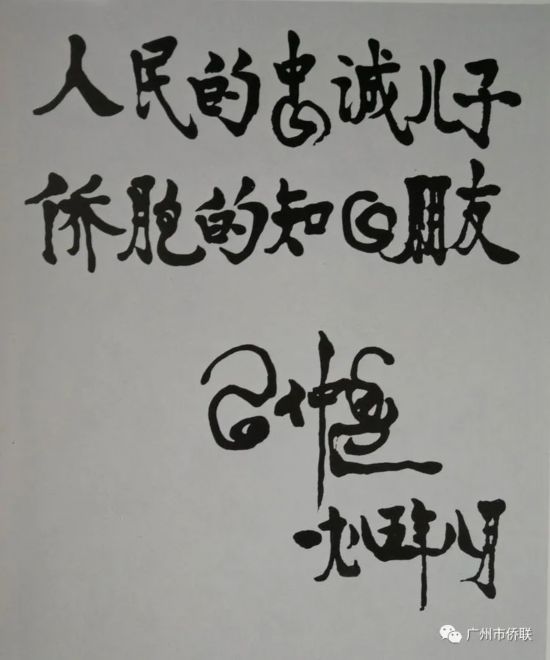 人民的忠诚儿子
侨胞的知心朋友
习仲勋
一九八五年八月
广州市侨联